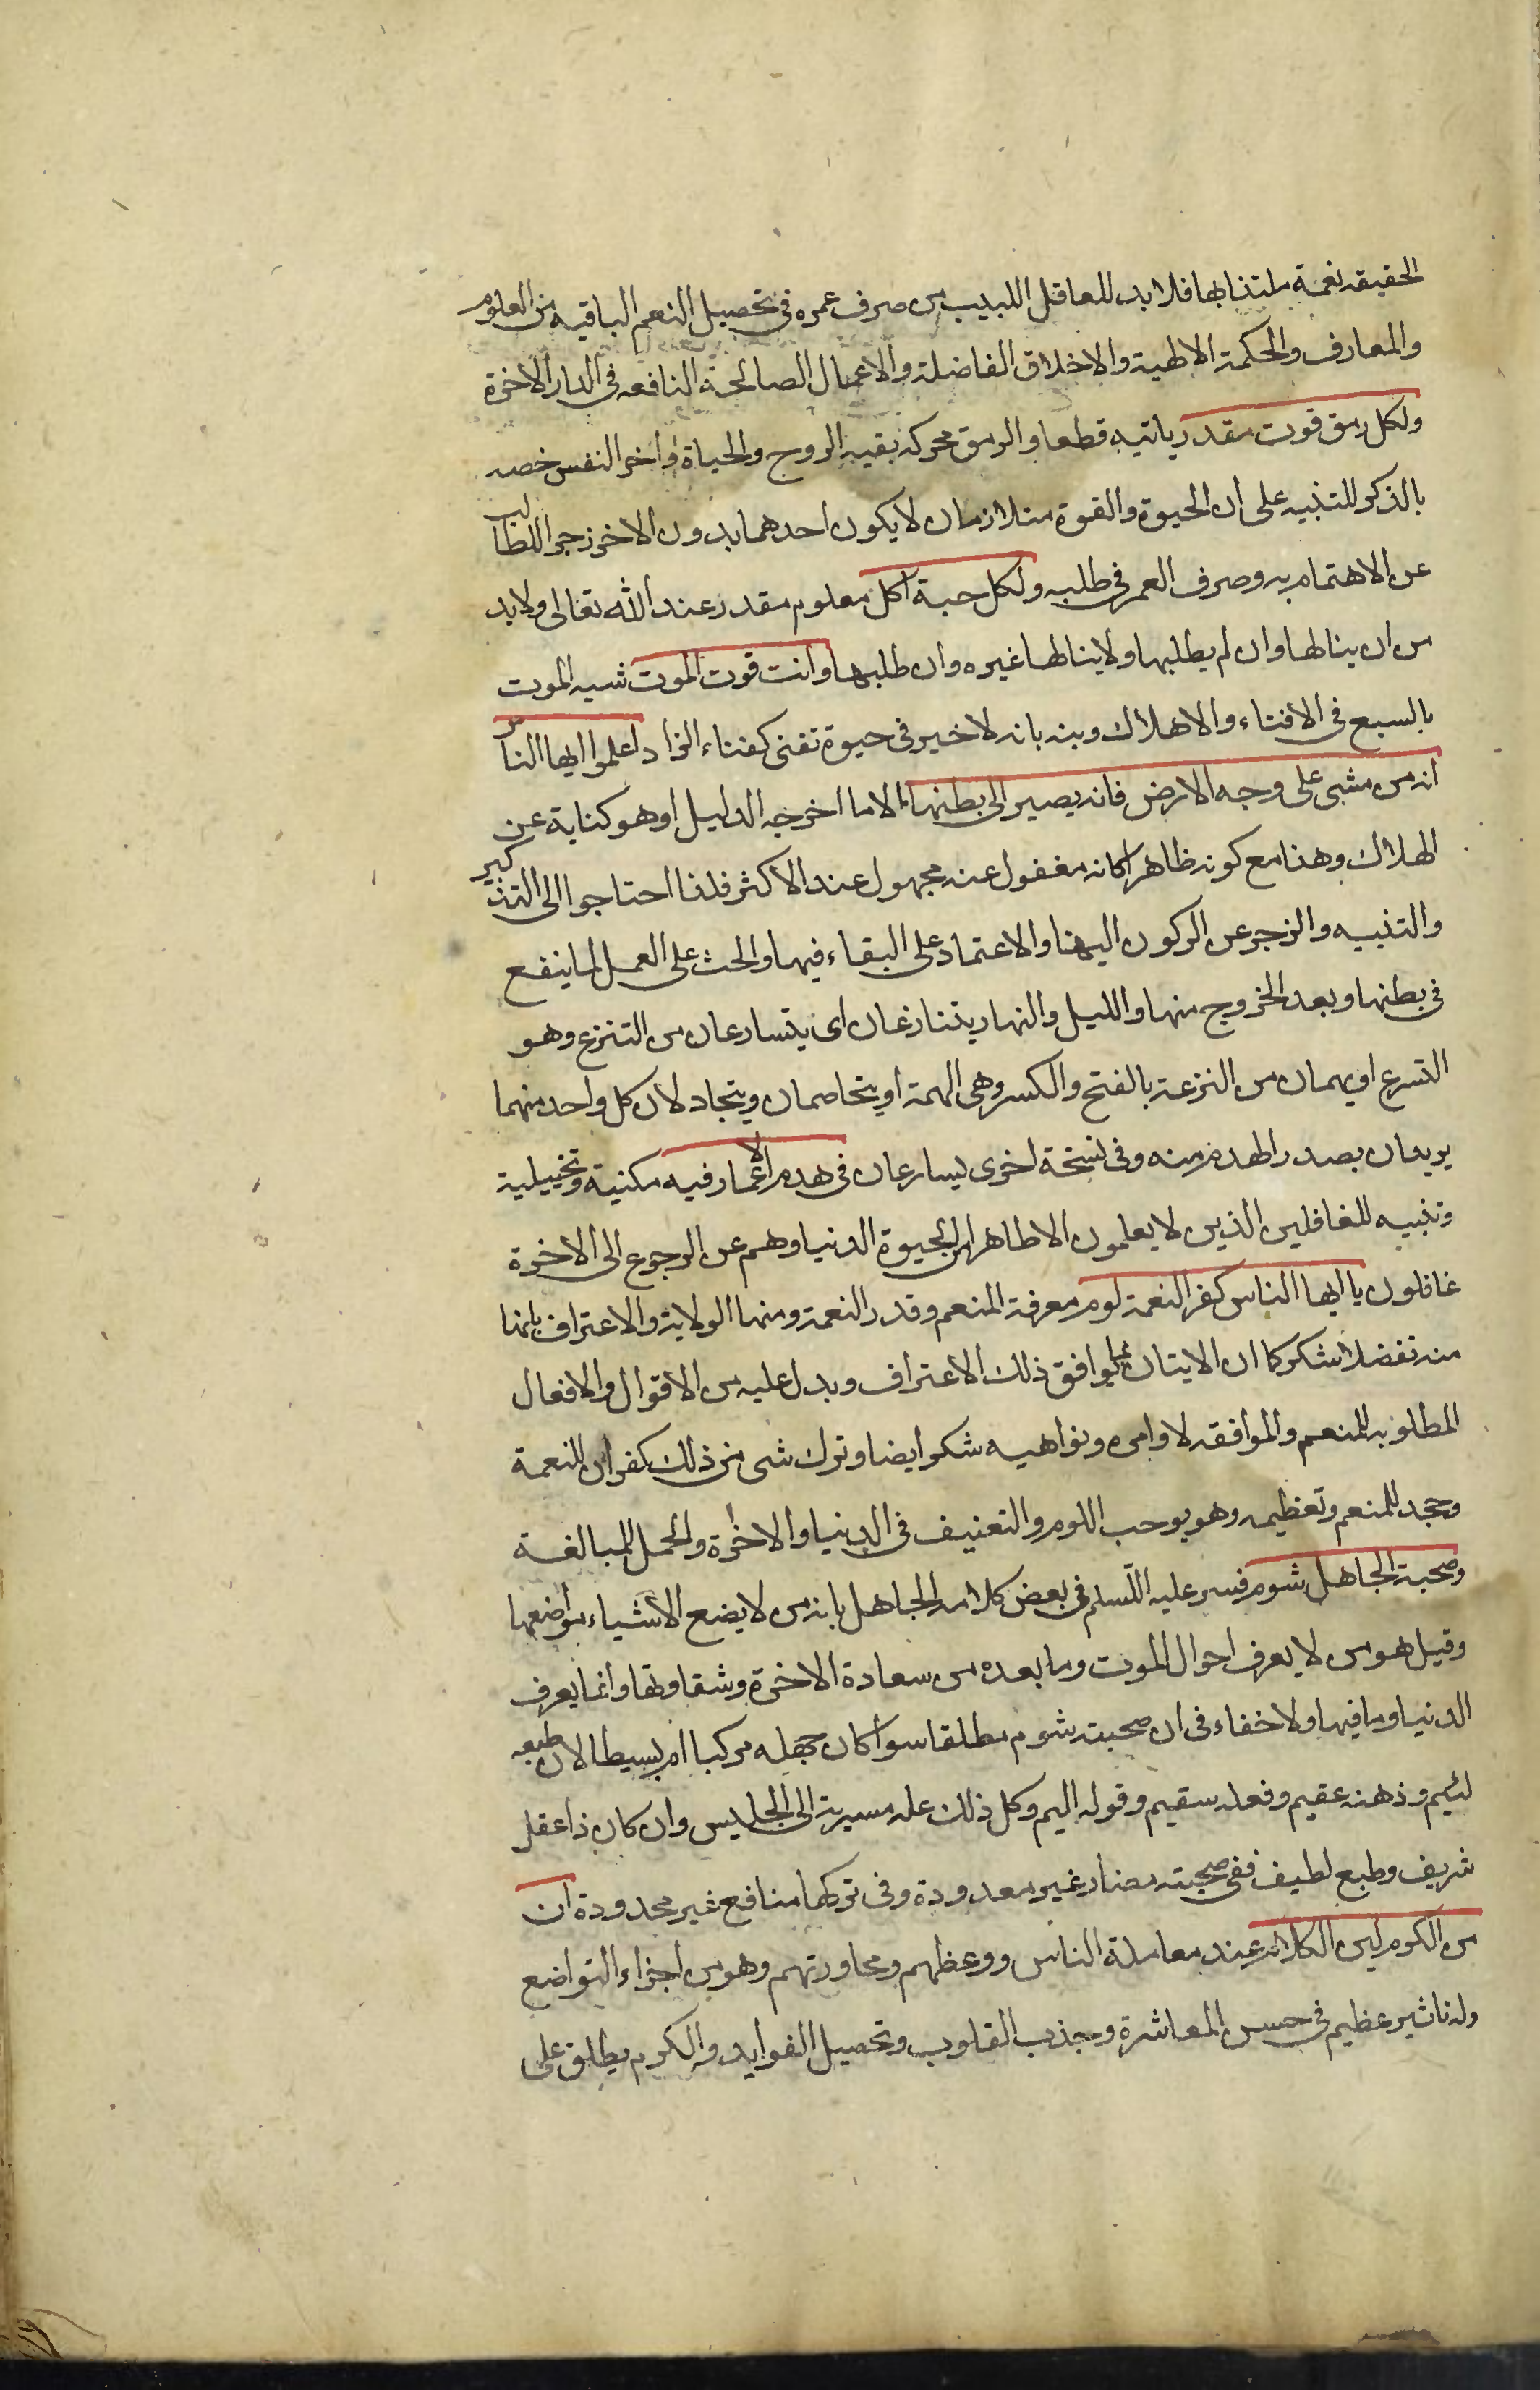 الحقيقه نعمة ملتذا بها فلا بد للعاقل اللبيب من صرف عمره فى تحصيل النعم الباقيه من العلوم
والمعارف والحكمة الالهية والاخلاق الفاضلة والاعمال الصالحة النافعه فى الدار الاخرة
ولكل رمق قوت مقدر ياتيه قطعا والرمق محركه بقيه الروح والحياة واخر النفس خصه
بالذكر للتنبيه على ان الحيوة والقوة متلازمان لا يكون احدهما بدون الاخر زجرا للطالب
عن الاهتمام به وصرف العمر فى طلبه ولكل حبة اكل معلوم مقدر عند الله تعالى ولا بد
من ان ينالها وان لم يطلبها ولا ينالها غيره وان طلبها وانت قوت الموت شبه الموت
بالسبع فى الافناء والاهلاك وبنه بانه لا خير فى حيوة تفنى كفناء الزاد اعلموا ايها الناس
انه من مشى على وجه الارض فانه يصير الى بطنها الا ما اخرجه الدليل او هو كناية عن
الهلاك وهذا مع كونه ظاهرا كانه مغفول عنه مجهول عند الاكثر فلذا احتاجوا الى التذكير
والتنبيه والزجر عن الركون اليها والاعتماد على البقاء فيها والحث على العمل لما ينفع
فى بطنها وبعد الخروج منها والليل والنهار يتنازعان اى يتسارعان من التنزع وهو
التسرع او يهمان من النزعة بالفتح والكسر وهى الهمة او يتخاصمان ويتجادلان كل واحد منهما
يريدان بصدر الهدم منه وفى نسخة اخرى يسارعان فى هدم الاعمار فيه مكنية وتخييلية
وتنبيه للغافلين الذين لا يعلمون الا ظاهرا من الحيوة الدنيا وهم عن الرجوع الى الاخرة
غافلون يا ايها الناس كفر النعمة لوم معرفة المنعم وقدر النعمة ومنها الولاية والاعتراف بانها
منه تفضلا شكر كما ان الايتان بما يوافق ذلك الاعتراف ويدل عليه من الاقوال والافعال
المطلوبه للمنعم والموافقه لاوامره ونواهيه شكر ايضا وترك شى من ذلك كفران للنعمة
وجحد للمنعم وتعظيمه وهو يوجب اللوم والتعنيف فى الدنيا والاخرة والحمل للمبالغة
وصحبة الجاهل شوم فسر عليه السلم فى بعض كلامه الجاهل بانه من لا يضع الاشياء مواضعها
وقيل هو من لا يعرف احوال الموت وما بعده من سعادة الاخرة وشقاوتها وانما يعرف
الدنيا وما فيها ولا خفاء فى ان صحبته شوم مطلقا سوا كان جهله مركبا ام بسيطا لان طبعه
لئيم وذهنه عقيم وفعله سقيم وقوله اليم وكل ذلك عله مسيرية الى الجليس وان كان ذا عقل
شريف وطبع لطيف ففى صحبته مضار غير معدودة وفى تركها منافع غير محدودة ان
من الكرم لين الكلام عند معاملة الناس ووعظهم ومحاورتهم وهو من اجزاء التواضع
وله تاثير عظيم فى حسن المعاشرة وجذب القلوب وتحصيل الفوايد والكرم يطلق على